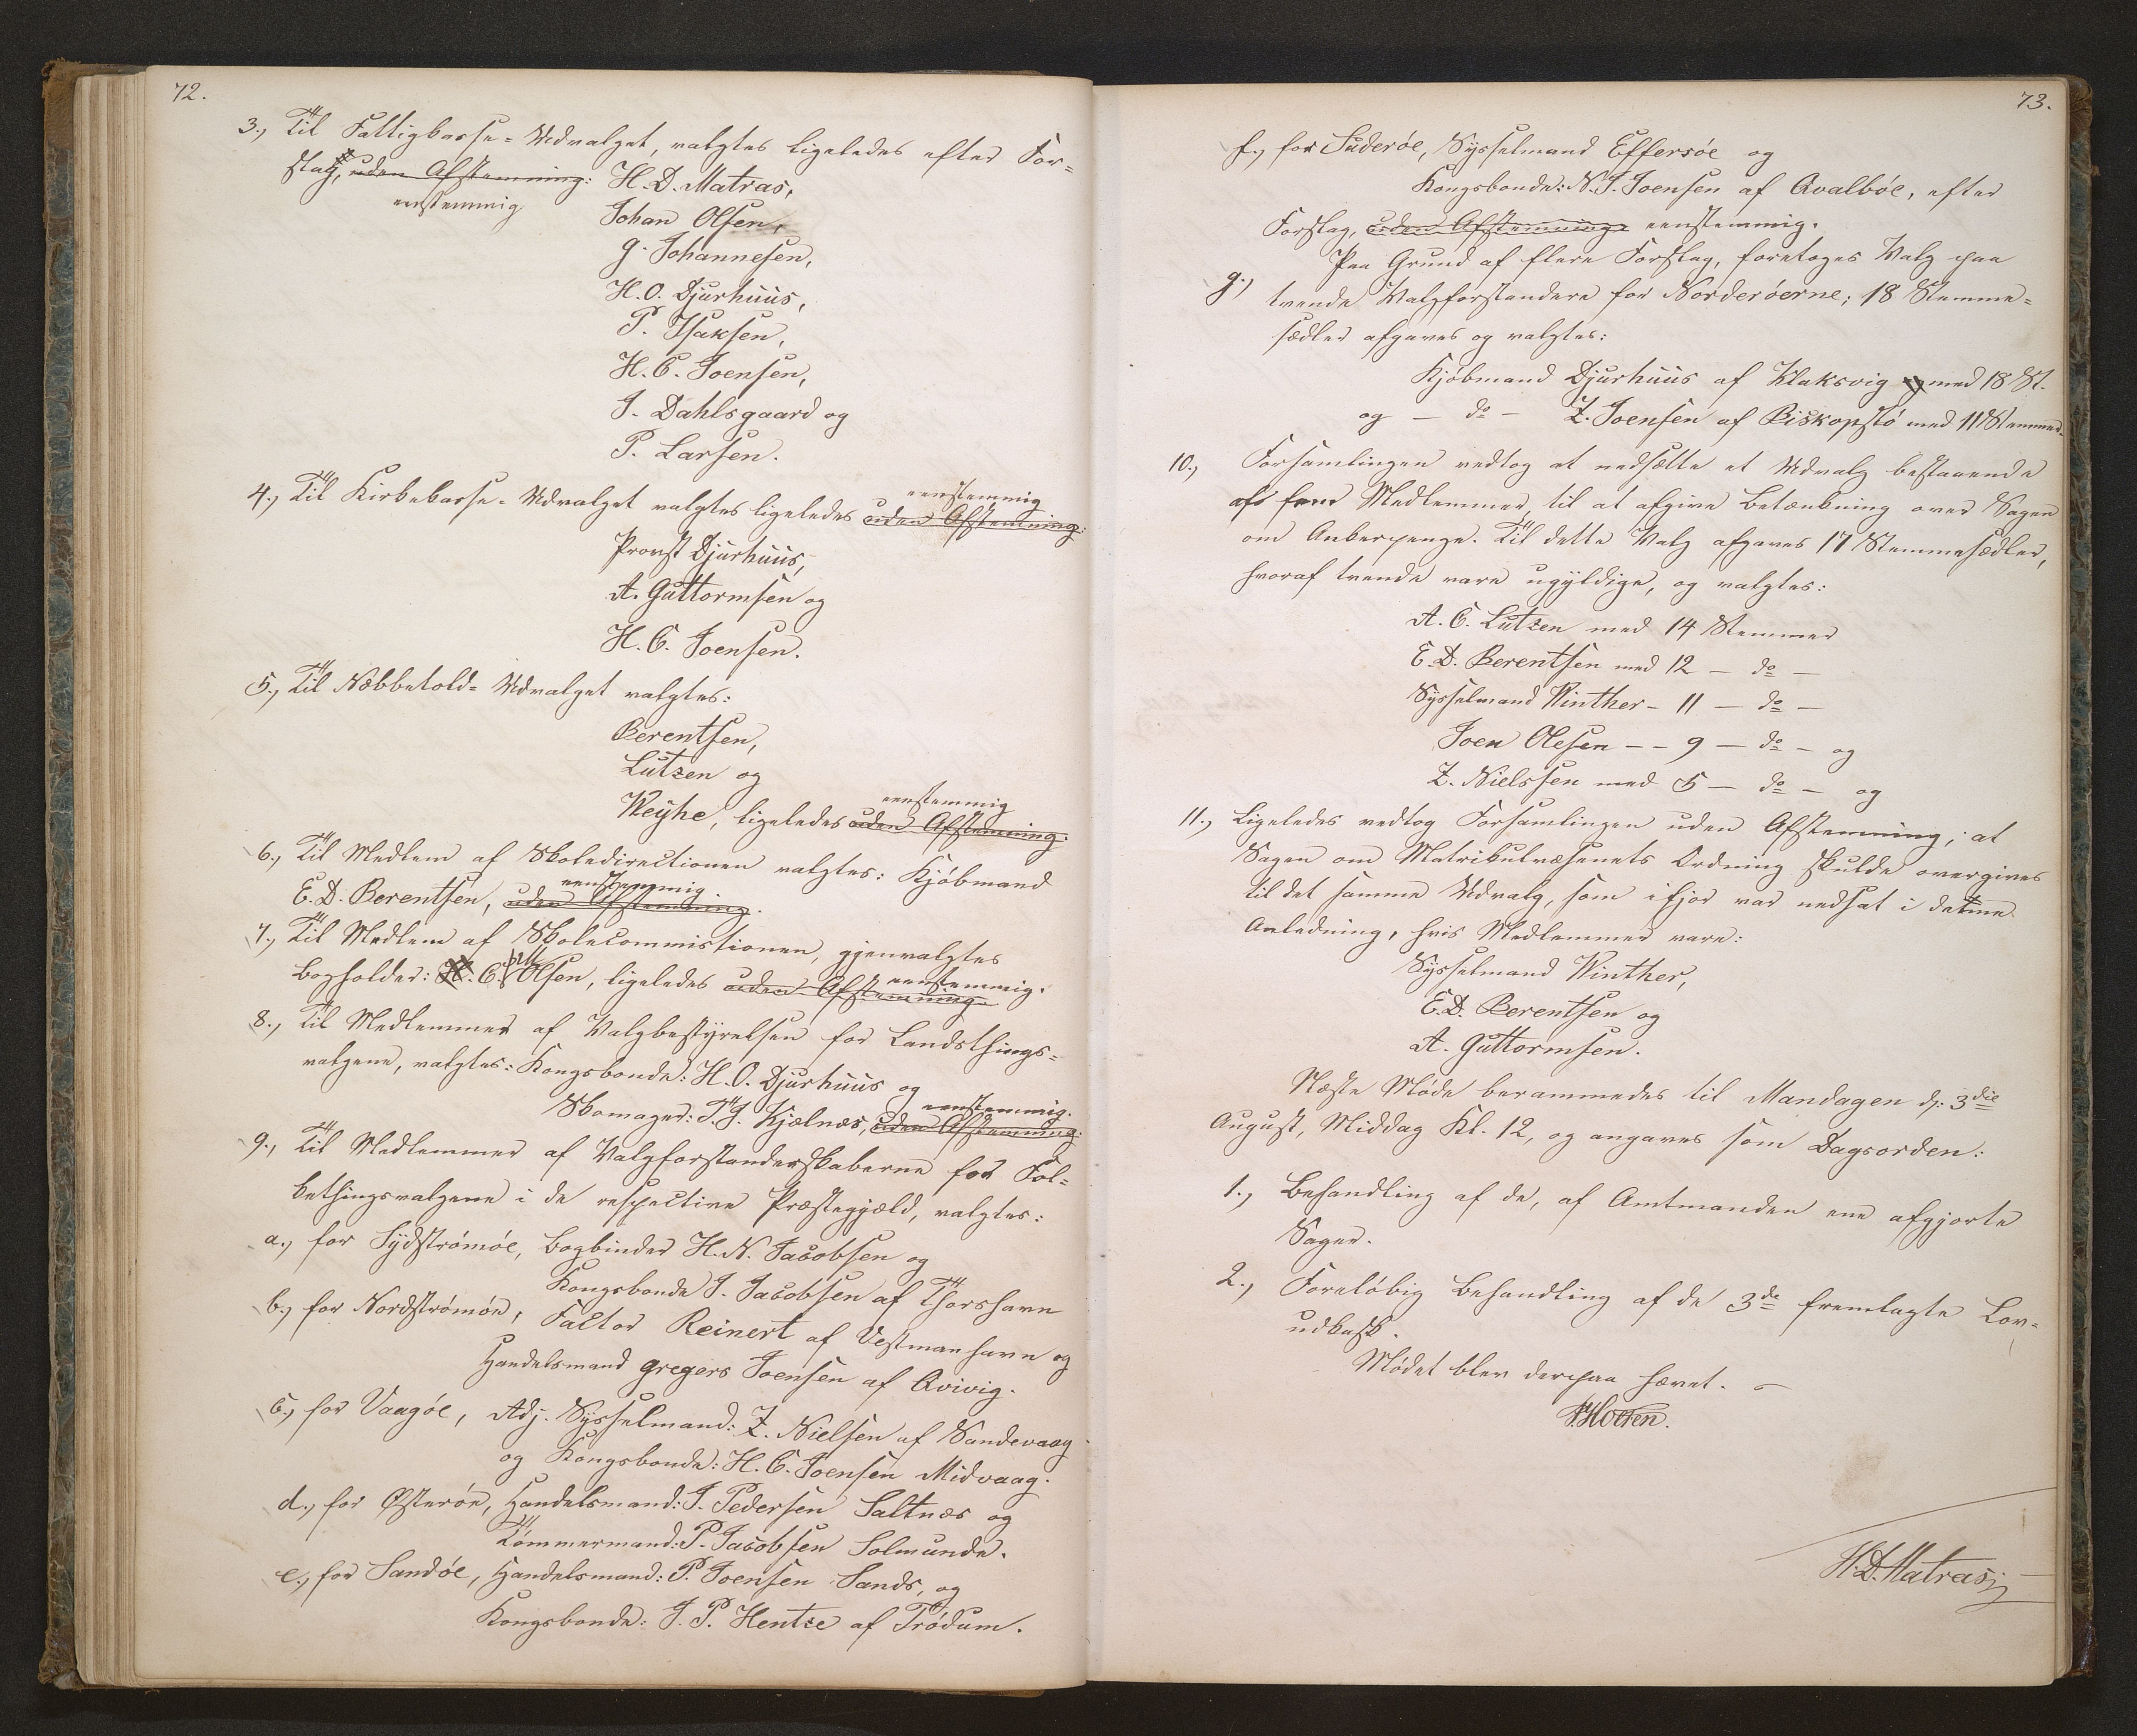 72.
3., Til Fattigkasse-Udvalget, valgtes ligeledes efter For-
slag, uden Afstemning: H. D. Matras,
eenstemmig
Johan Olsen,
G. Johannesen,
H. O. Djurhuus,
P. Isaksen,
H. C. Joensen,
J. Dahlsgaard og
P. Larsen.
4., Til Kirkekasse-Udvalget valgtes ligeledes uden Afstemning:
eenstemmig
Provst Djurhuus,
A. Guttormsen og
H. C. Joensen.
5., Til Næbbetold-Udvalget valgtes:
Berentsen,
Lützen og
Weyhe, ligeledes uden Afstemning.
eenstemmig
6., Til Medlem af Skoledirectionen valgtes: Kjøbmand
E. D. Berentsen, uden Afstemning.
eenstemmig.
7., Til Medlem af Skolecommissionen, gjenvalgtes
Bogholder: C. Olsen, ligeledes uden Afstemning
eenstemmig.
8., Til Medlemmer af Valgbestyrelsen for Landsthings-
valgene, valgtes: Kongsbonde: H. O. Djurhuus og
Skomager: T. J. Kjølnæs, uden Afstemning:
eenstemmig.
9., Til Medlemmer af Valgforstanderskaberne for Fol-
kethingsvalgene i de respective Præstegjæld, valgtes:
a., for Sydstrømøe, Bogbinder H. N. Jacobsen og
Kongsbonde J. Jacobsen af Thorshavn
b., for Nordstrømøe, Factor Reinert af Vestmanhavn og
Handelsmand Gregers Joensen af Qvivig.
c., for Vaagøe, Adj. Sysselmand: Z. Nielsen af Sandevaag
og Kongsbonde: H. C. Joensen Midvaag.
d., for Østerøe, Handelsmand: J. Pedersen Saltnæs og
Tømmermand: P. Jacobsen Solmunde.
e., for Sandøe, Handelsmand: P. Joensen Sands, og
Kongsbonde: J. P. Hentze af Trødum.
73.
f., for Suderøe, Sysselmand Effersøe og
Kongsbonde: N. J. Joensen af Qvalbøe, efter
Forslag, uden Afstemning eenstemmig.
Paa Grund af flere Forslag, foretoges Valg paa
g.) tvende Valgforstandere for Norderøerne; 18 Stemme-
sedler afgaves og valgtes:
Kjøbmand Djurhuus af Klaksvig og med 18 St.
og — do — Z. Joensen af Biskopstø med 11 Stemmer.
10., Forsamlingen vedtog at nedsætte et Udvalg bestaaende
af fem Medlemmer, til at afgive Betænkning over Sagen
om Ankerpenge. Til dette Valg afgaves 17 Stemmesedler,
hvoraf tvende vare ugyldige, og valgtes:
A. C. Lützen med 14 Stemmer
E. D. Berentsen med 12 — do —
Sysselmand Winther – 11 — do —
Joen Olesen – – 9 — do – og
Z. Nielssen med 5 — do – og
11., Ligeledes vedtog Forsamlingen uden Afstemning, at
Sagen om Matrikulvæsenets Ordning skulde overgives
til det samme Udvalg, som ifjor var nedsat i denne
Anledning, hvis Medlemmer vare:
Sysselmand Winther,
E. D. Berentsen og
A. Guttormsen.
Næste Møde berammedes til Mandagen d. 3die
August, Middag Kl. 12, og angaves som Dagsorden:
1., Behandling af de, af Amtmanden ene afgjorte
Sager.
2., Foreløbig Behandling af de 3de fremlagte Lov-
udkast.
Mødet blev derpaa hævet. —
Holten.
H. D. Matras